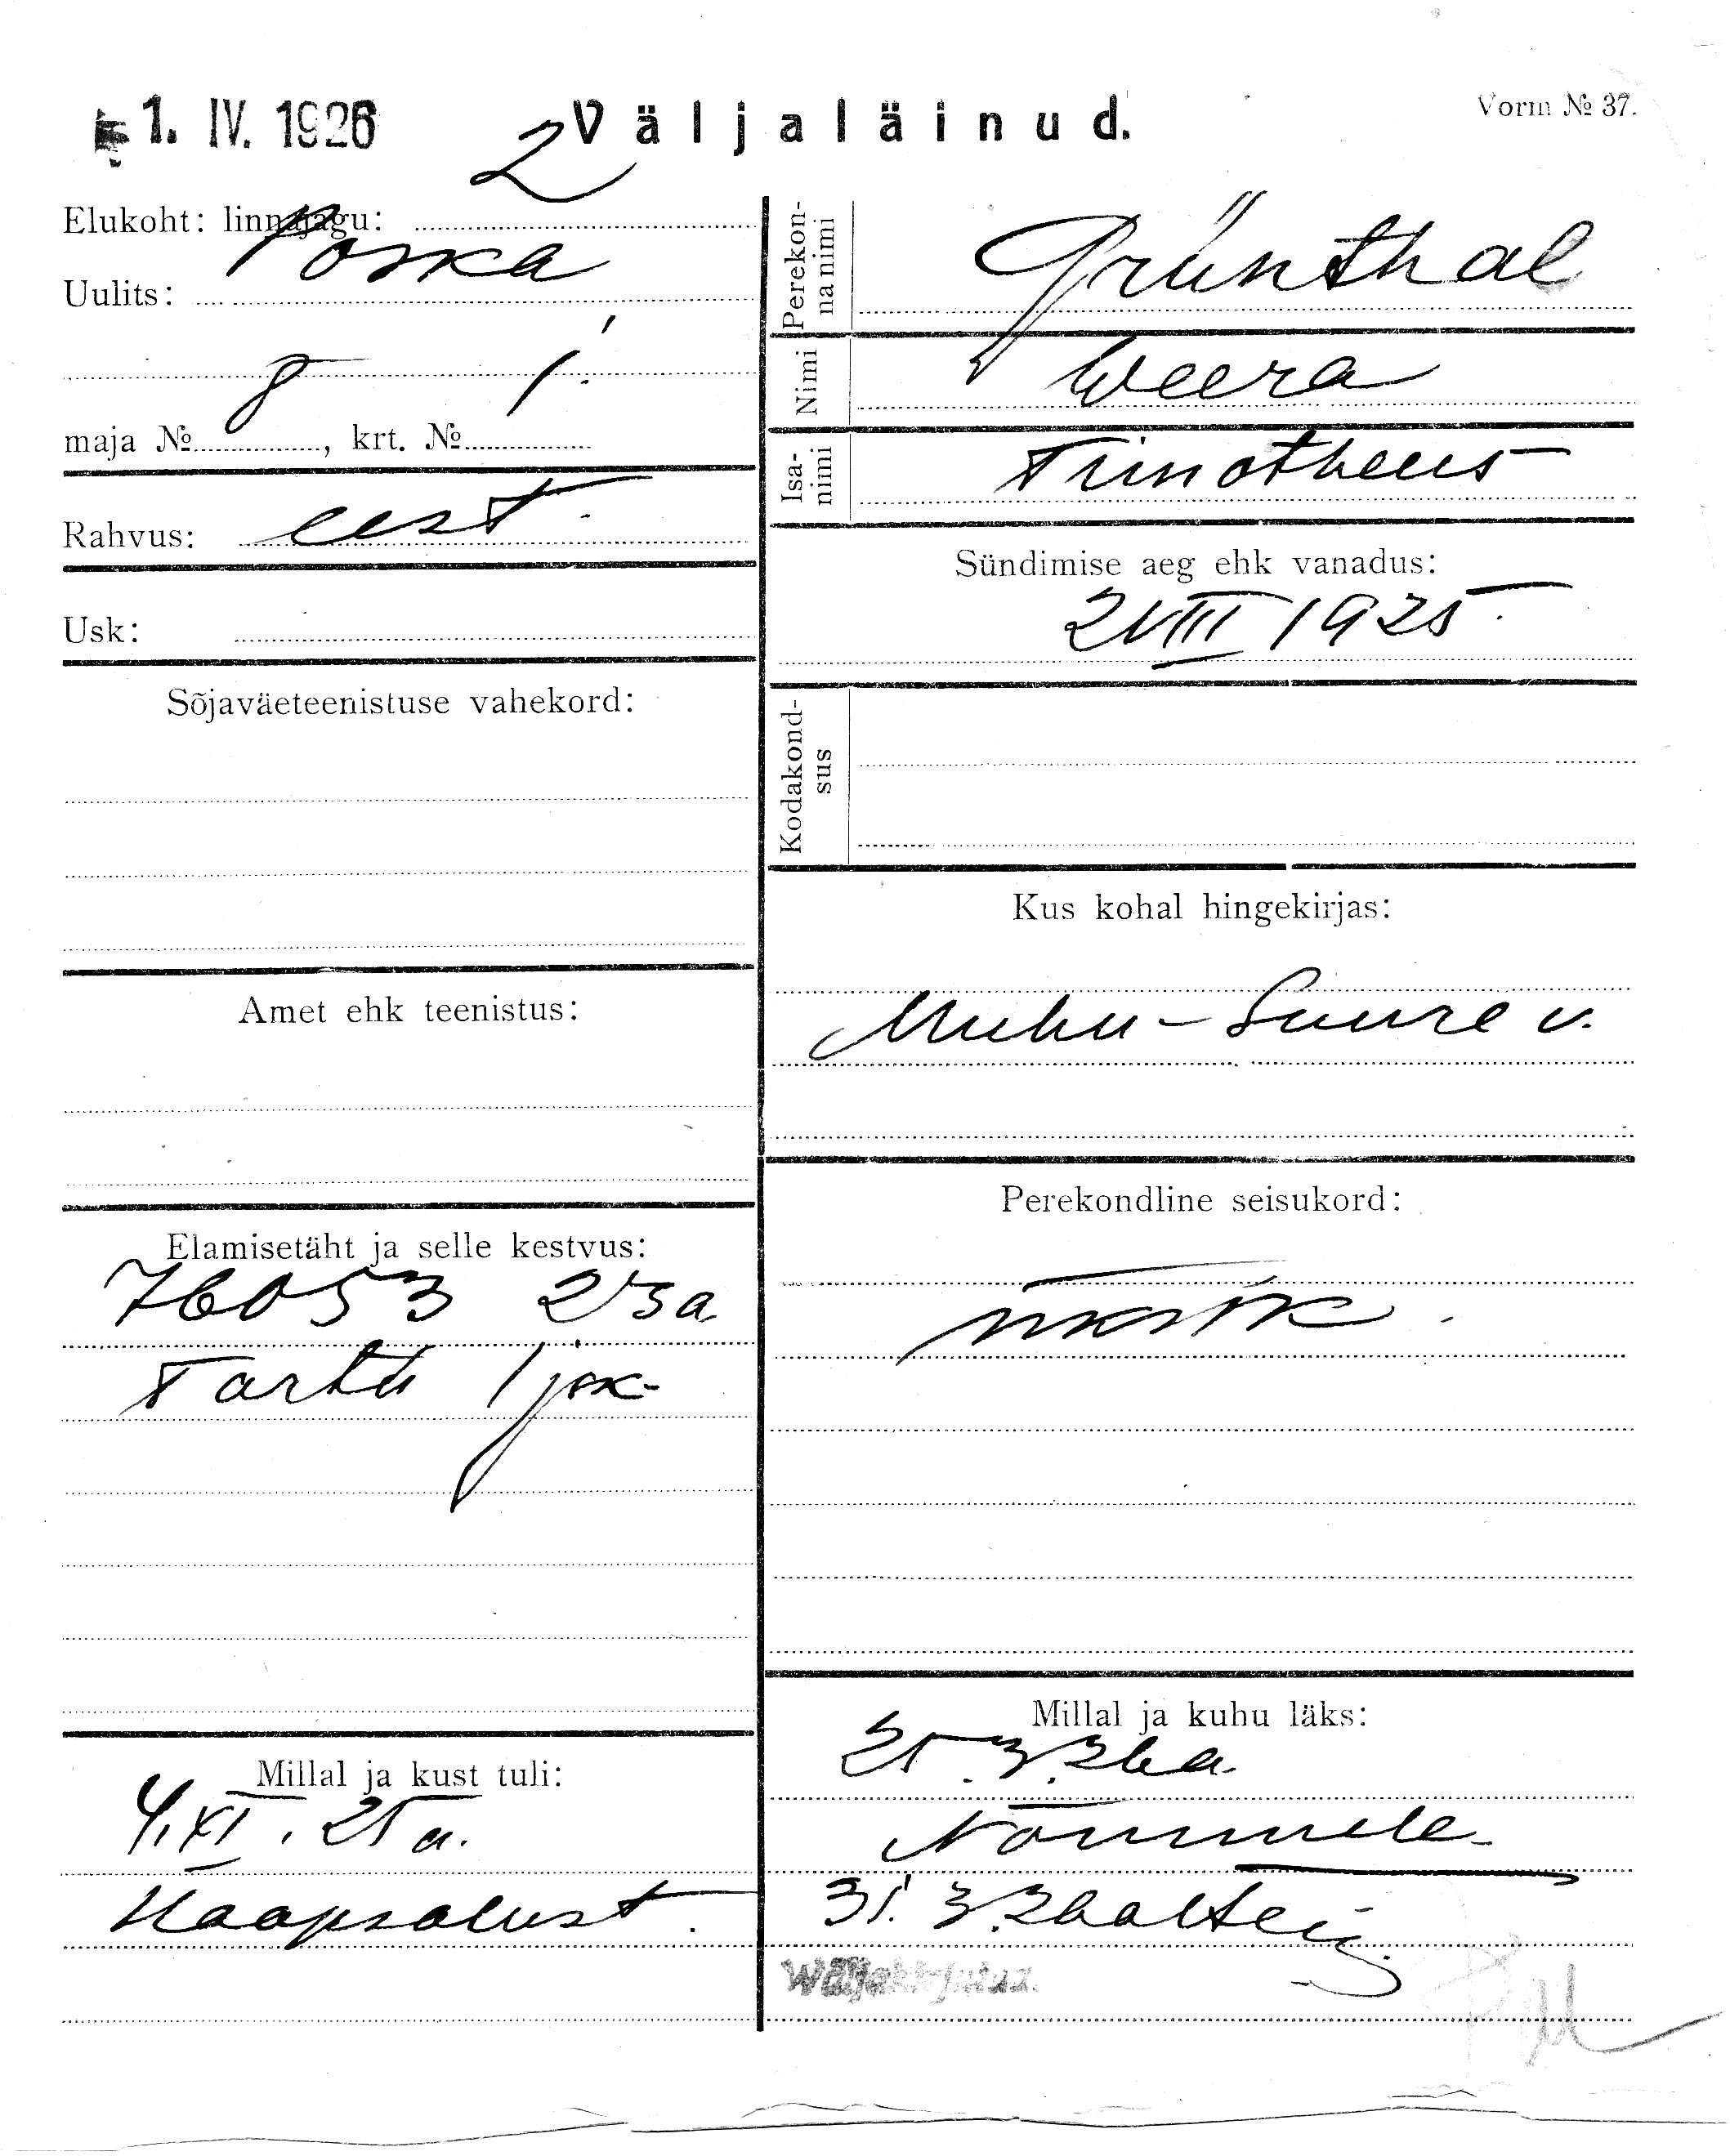 1. IV. 1926
Väljaläinud.
Vorm № 37.
2
Elukoht: linnajagu:
Uulits: Poska
8 1.
maja № , krt. №
Rahvus: eest.
Usk:
Sõjaväeteenistuse vahekord:
Amet ehk teenistus:
Elamisetäht ja selle kestvus:
76053 25a.
Tartu 1 jsk.
Millal ja kust tuli:
4. XI. 25 a.
Haapsalust.
Perekon-
na nimi
Grünthal
Nimi
Weera
Isa-
nimi
Timotheus
Sündimise aeg ehk vanadus:
2 VIII 1925.
Kodakond-
sus
Kus kohal hingekirjas:
Muhu-Suure v.
Perekondline seisukord:
üksik.
Millal ja kuhu läks:
25.3.26a.
Nõmmele
31.3.26a